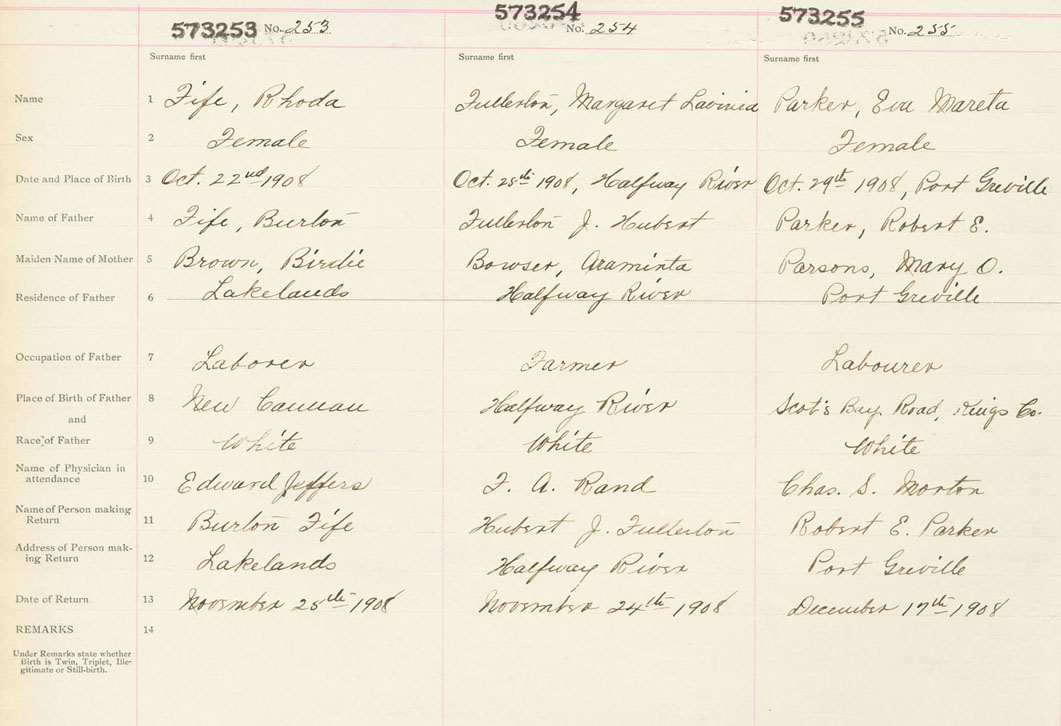 573253 No. 253 573254 No. 254 573255 No. 255
Surname first Surname first Surname first
Name 1 Fife, Rhoda Fullerton, Margaret Lavinia Parker, Eva Mareta
Sex 2 Female Female Female
Date and Place of Birth 3 Oct. 22nd 1908 Oct. 25th 1908, Halfway River Oct. 29th 1908, Port Greville
Name of Father 4 Fife, Burton Fullerton J. Hubert Parker, Robert E.
Maiden Name of Mother 5 Brown, Birdie Bowser, Araminta Parsons, Mary O.
Residence of Father 6 Lakelands Halfway River Port Greville
Occupation of Father 7 Laborer Farmer Labourer
Place of Birth of Father 8 New Canaan Halfway River Scot's Bay Road, Kings Co.
and
Race of Father 9 White White White
Name of Physician in
attendance 10 Edward Jeffers F. A. Rand Chas. S. Morton
Name of Person making
Return 11 Burton Fife Hubert J. Fullerton Robert E. Parker
Address of Person mak-
ing Return 12 Lakelands Halfway River Port Greville
Date of Return 13 November 25th 1908 November 24th 1908 December 17th 1908
REMARKS 14
Under Remarks state whether
Birth is Twin, Triplet, Ille-
gitimate or Still-birth.